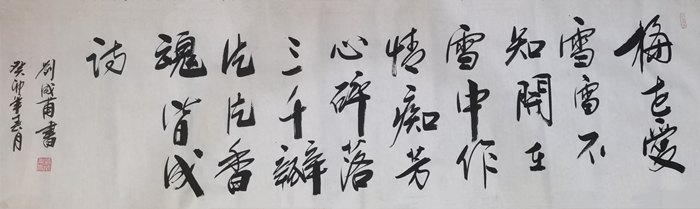 梅花爱
雪雪不
知闻在
雪中作
情痴芳
心碎落
三千瓣
片片香
魂皆成
诗
癸卯年春月
刘成甫书